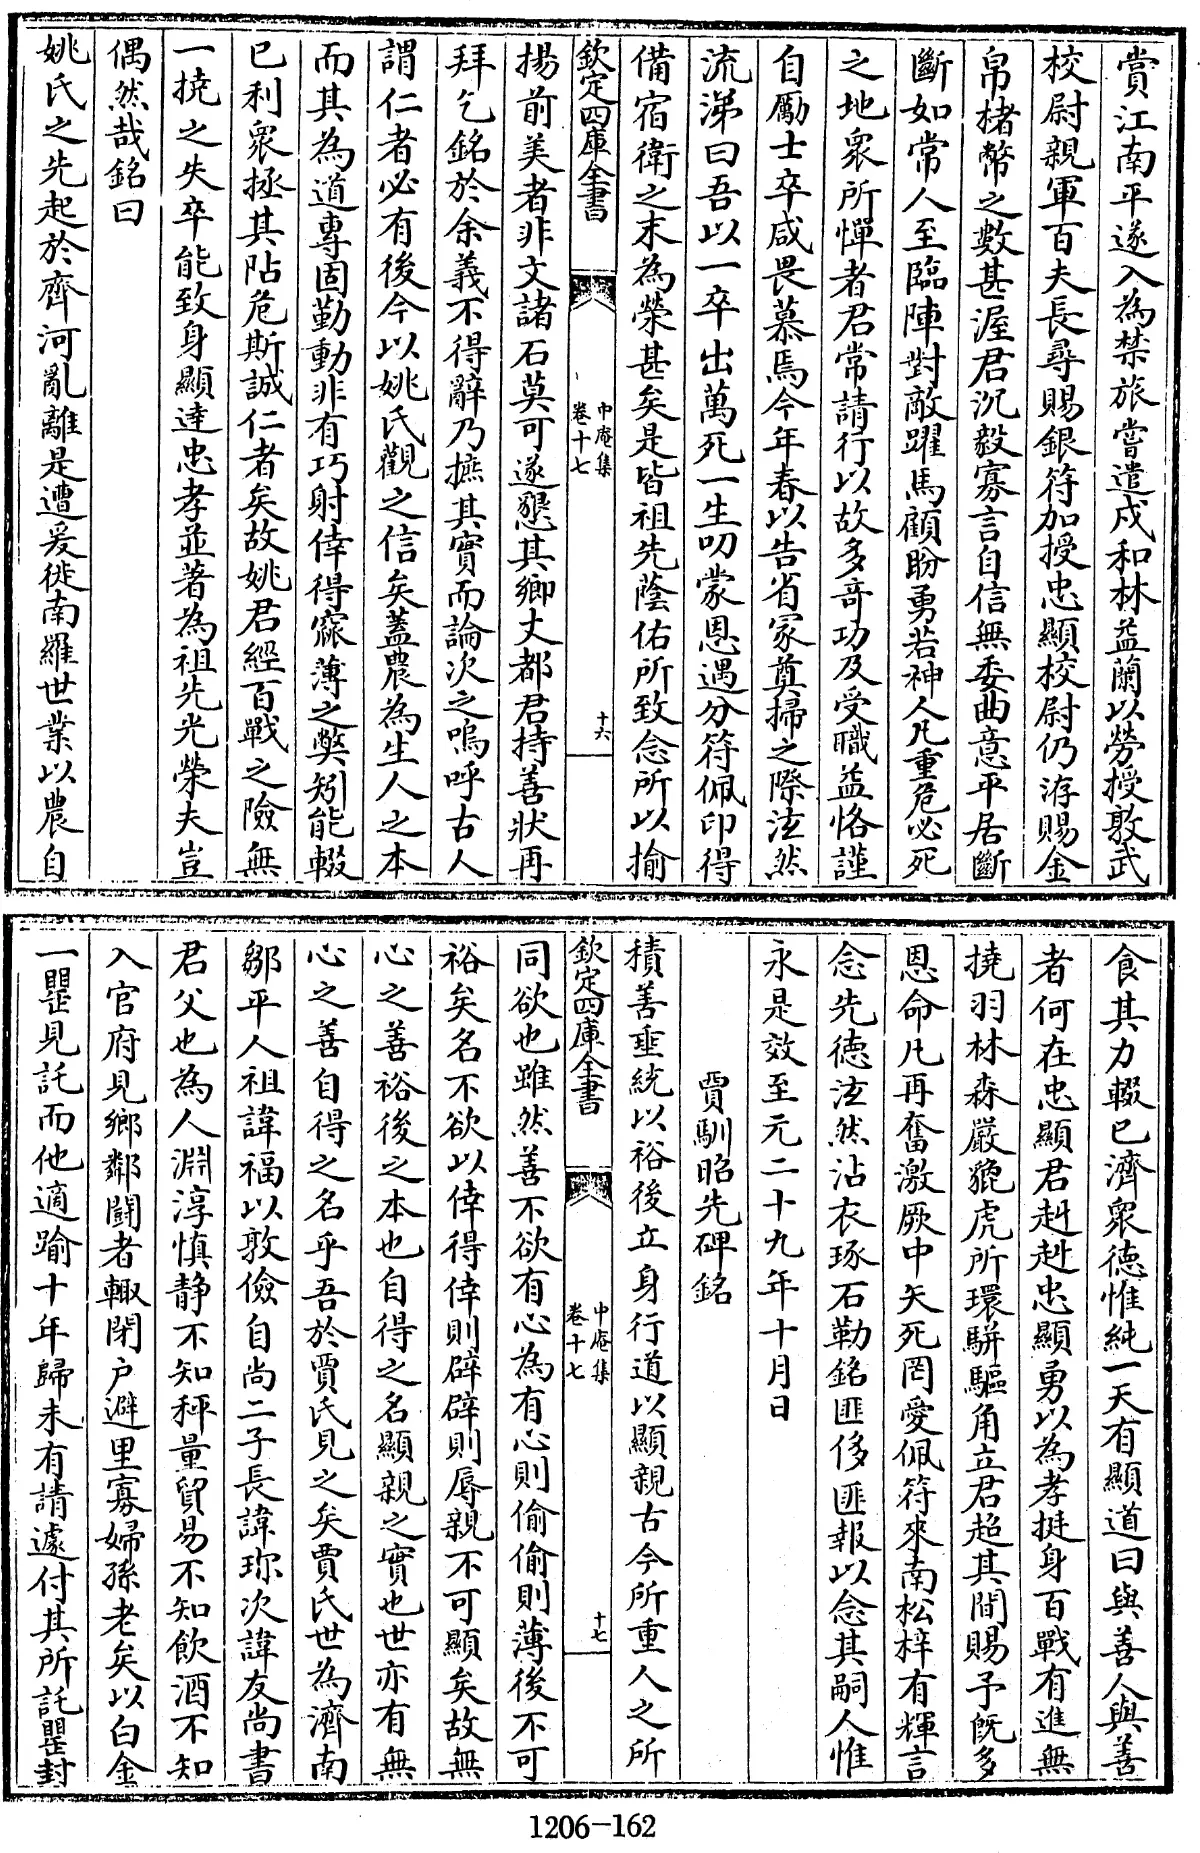 賞江南平遂入為禁旅嘗遣戍和林益蘭以勞授敦武
校尉親軍百夫長尋賜銀符加授忠顯校尉仍洊賜金
帛楮幣之數甚渥君沉毅寡言自信無委曲意平居斷
斷如常人至臨陣對敵躍馬顧盼勇若神人凡重危必死
之地衆所憚者君常請行以故多奇功及受職益恪謹
自勵士卒咸畏慕焉今年春以告省冡奠掃之際泫然
流涕曰吾以一卒出萬死一生叨蒙恩遇分符佩印得
備宿衛之末為榮甚矣是皆祖先蔭佑所致念所以揄
欽定四庫全書
中庵集
卷十七
十六
揚前美者非文諸石莫可遂懇其鄉丈都君持善狀再
拜乞銘於余義不得辭乃摭其實而論次之嗚呼古人
謂仁者必有後今以姚氏觀之信矣蓋農為生人之本
而其為道專固勤動非有巧射倖得寖薄之獘矧能輟
已利衆拯其阽危斯誠仁者矣故姚君經百戰之險無
一撓之失卒能致身顯達忠孝並著為祖先光榮夫豈
偶然哉銘曰
姚氏之先起於齊河亂離是遭爰徙南羅世業以農自
食其力輟已濟衆德惟純一天有顯道曰與善人與善
者何在忠顯君赳赳忠顯勇以為孝挺身百戰有進無
撓羽林森嚴貔虎所環駢驅角立君超其間賜予旣多
恩命凡再奮激厥中矢死罔愛佩符來南松梓有輝言
念先德泫然沾衣琢石勒銘匪侈匪報以念其嗣人惟
永是效至元二十九年十月日
賈馴昭先碑銘
積善垂統以裕後立身行道以顯親古今所重人之所
欽定四庫全書
中庵集
卷十七
十七
同欲也雖然善不欲有心為有心則偷偷則薄後不可
裕矣名不欲以倖得倖則辟辟則辱親不可顯矣故無
心之善裕後之本也自得之名顯親之實也世亦有無
心之善自得之名乎吾於賈氏見之矣賈氏世為濟南
鄒平人祖諱福以敦儉自尚二子長諱珎次諱友尚書
君父也為人淵淳慎静不知秤量貿易不知飲酒不知
入官府見鄉鄰鬪者輙閉户避里寡婦孫老矣以白金
一甖見託而他適踰十年歸未有請遽付其所託甖封
1206-162